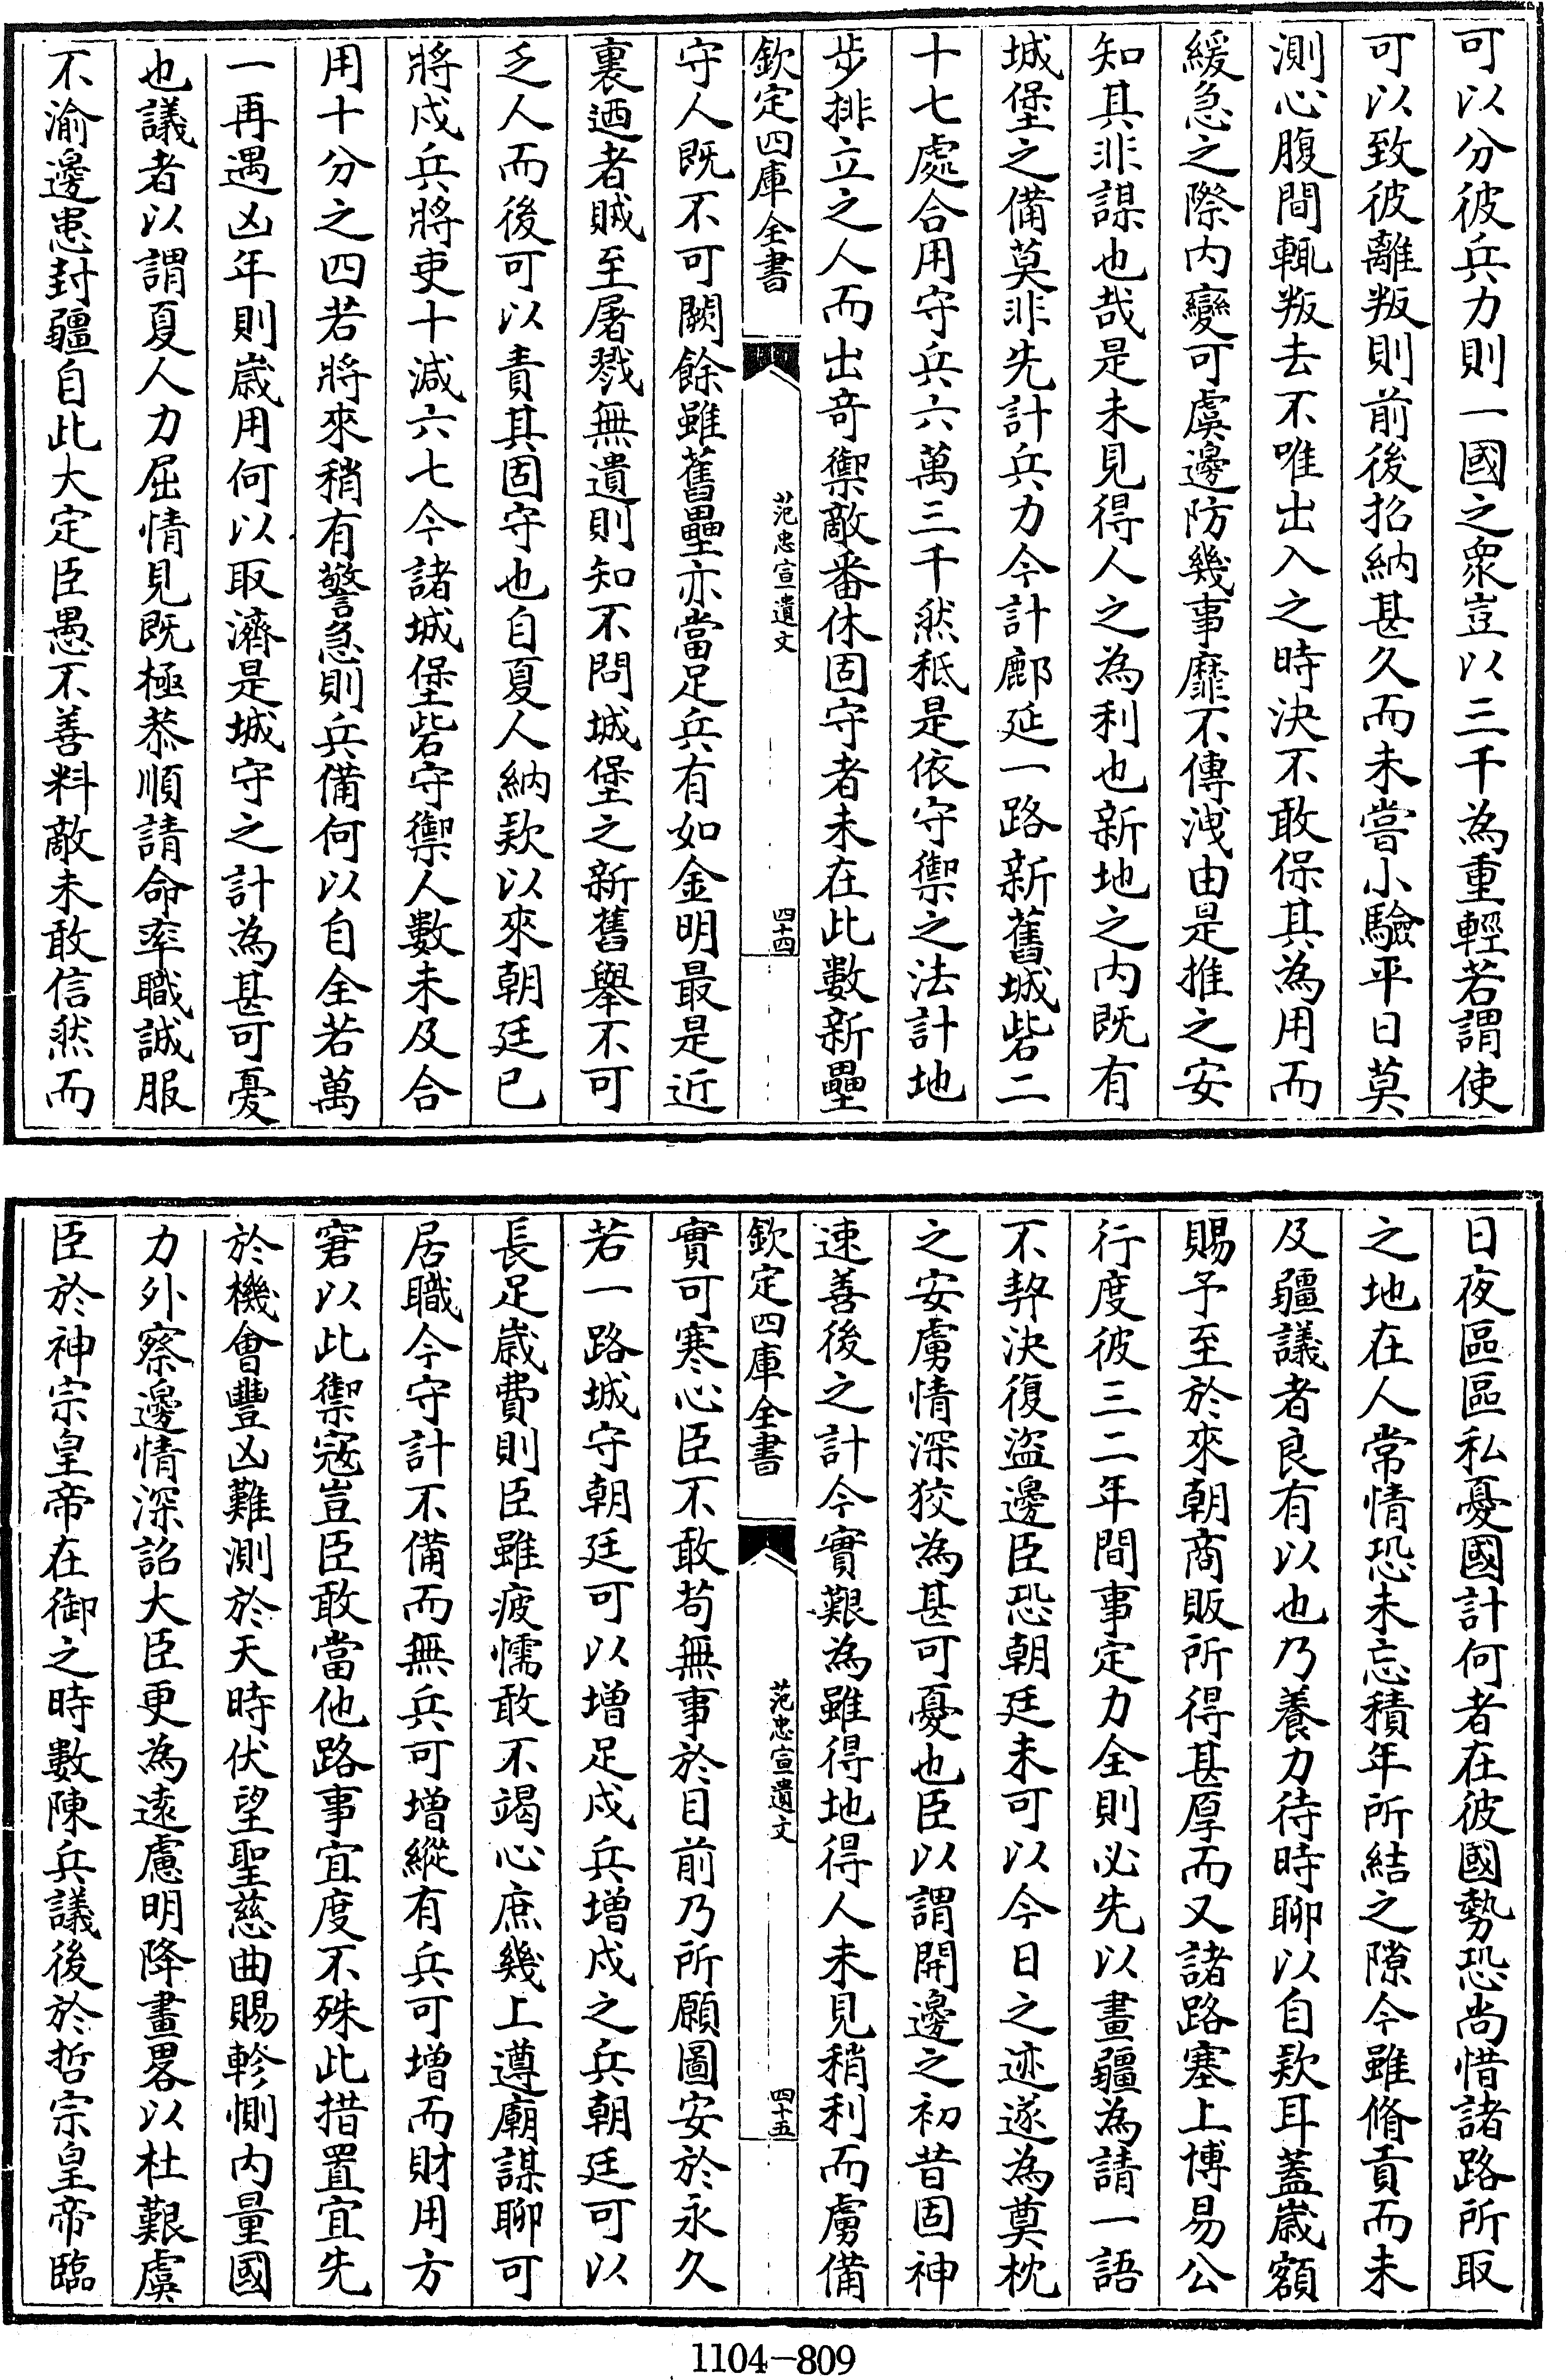 可以分彼兵力則一國之衆豈以三千為重輕若謂使
可以致彼離叛則前後招納甚久而未嘗小驗平日莫
測心腹間輒叛去不唯出入之時決不敢保其為用而
緩急之際内變可虞邊防幾事靡不傳洩由是推之安
知其非謀也哉是未見得人之為利也新地之内既有
城堡之備莫非先計兵力今計鄜延一路新舊城砦二
十七處合用守兵六萬三千然秪是依守禦之法計地
步排立之人而出竒禦敵番休固守者未在此數新壘
欽定四庫全書
范忠宣遺文
四十四
守人既不可闕餘雖舊壘亦當足兵有如金明最是近
裏迺者賊至屠戮無遺則知不問城堡之新舊舉不可
乏人而後可以責其固守也自夏人納欵以來朝廷已
將戍兵將吏十減六七今諸城堡砦守禦人數未及合
用十分之四若將來稍有警急則兵備何以自全若萬
一再遇凶年則歲用何以取濟是城守之計為甚可憂
也議者以謂夏人力屈情見既極恭順請命率職誠服
不渝邊患封疆自此大定臣愚不善料敵未敢信然而
日夜區區私憂國計何者在彼國勢恐尚惜諸路所取
之地在人常情恐未忘積年所結之隙今雖脩貢而未
及疆議者良有以也乃養力待時聊以自欵耳蓋歲額
賜予至於來朝商販所得甚厚而又諸路塞上博易公
行度彼三二年間事定力全則必先以畫疆為請一語
不契決復盜邊臣恐朝廷未可以今日之迹遂為奠枕
之安虜情深狡為甚可憂也臣以謂開邊之初昔固神
速善後之計今實艱為雖得地得人未見稍利而虜備
欽定四庫全書
范忠宣遺文
四十五
實可寒心臣不敢苟無事於目前乃所願圖安於永久
若一路城守朝廷可以增足戍兵增戍之兵朝廷可以
長足歲費則臣雖疲懦敢不竭心庶幾上遵廟謀聊可
居職今守計不備而無兵可增縱有兵可增而財用方
窘以此禦寇豈臣敢當他路事宜度不殊此措置宜先
於機會豐凶難測於天時伏望聖慈曲賜軫惻内量國
力外察邊情深詔大臣更為遠慮明降畫畧以杜艱虞
臣於神宗皇帝在御之時數陳兵議後於哲宗皇帝臨
1104—809